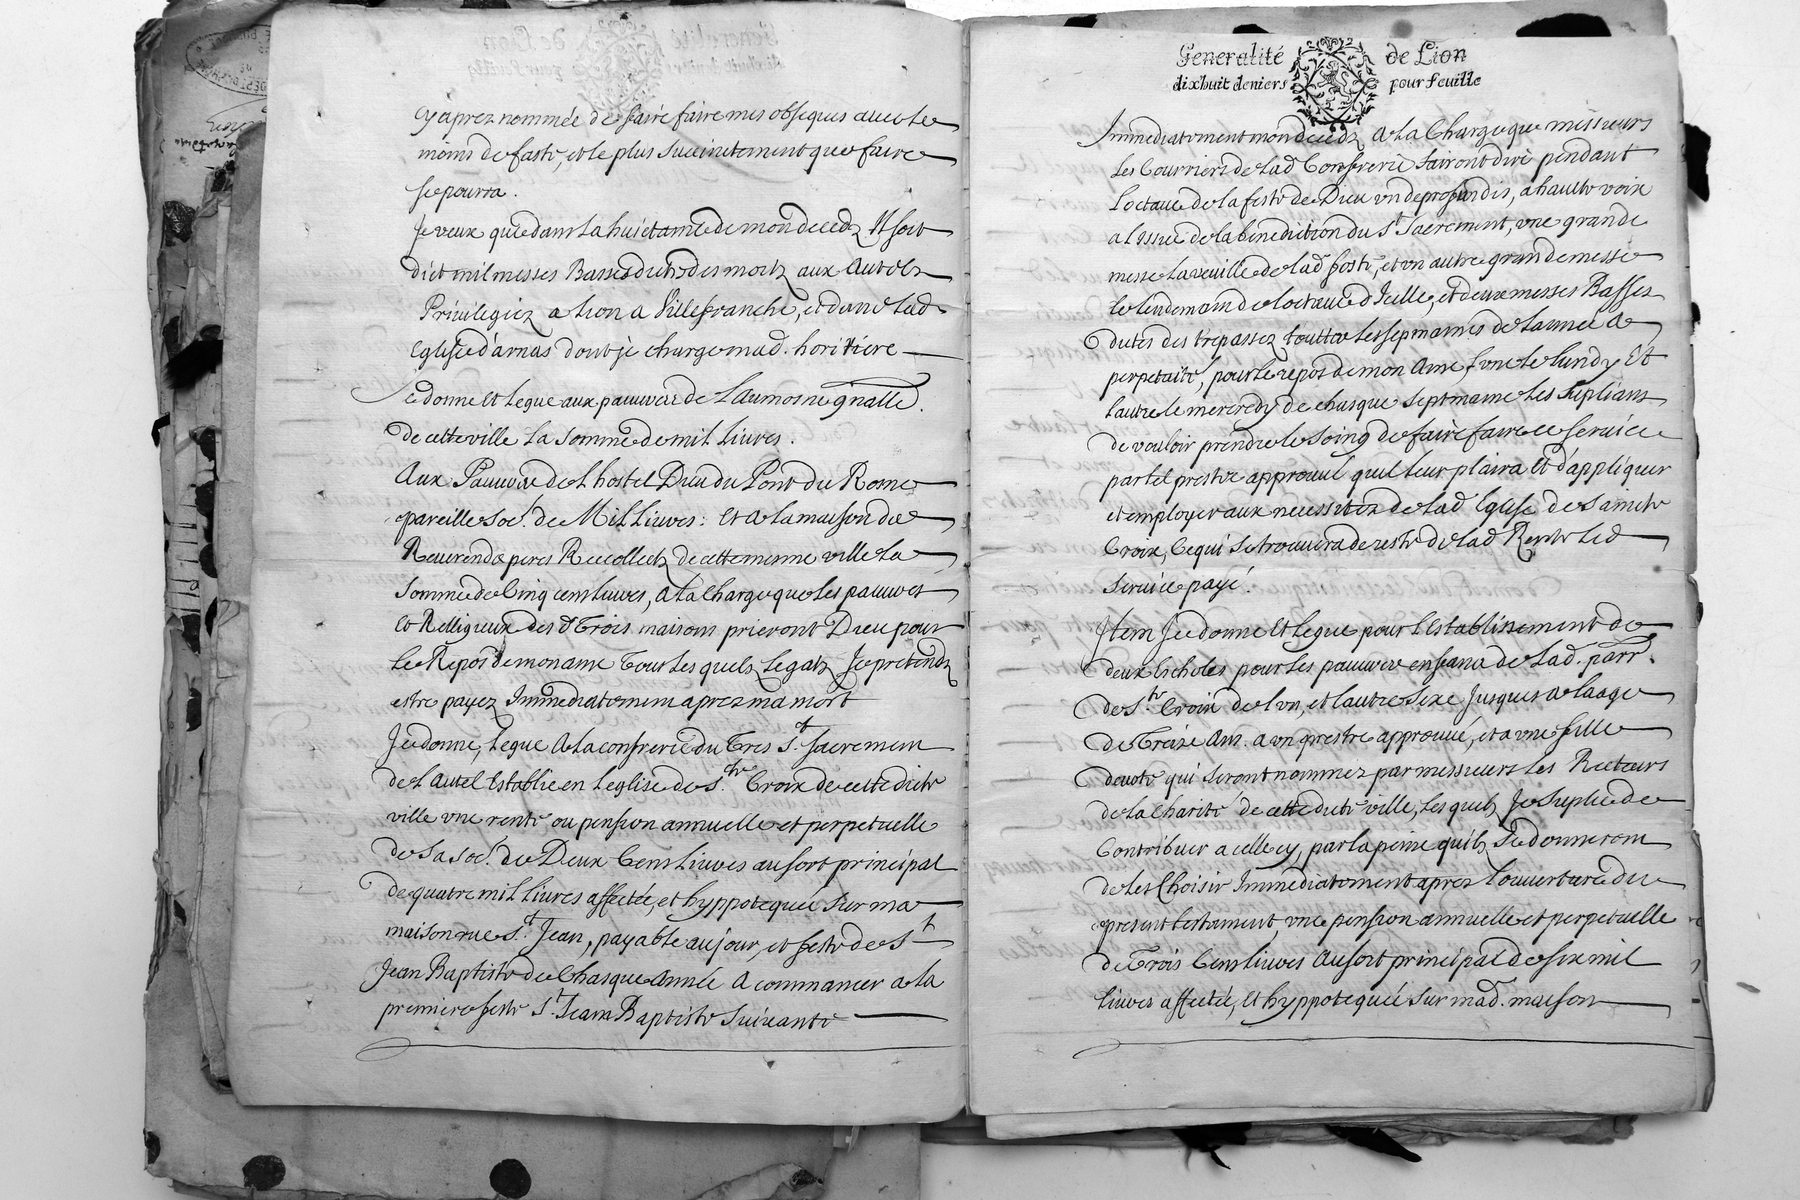 cy aprez nommée de faire faire mes obseques avec le
moins de faste, et le plus succinctement que faire
se pourra.
Je veux que dans la huictaine de mon decedz Il soit
dict mil messes Basses dictes des mortz aux Autelz
Privilegiez a Lion a Villefranche, et dans lad.
Eglise d'arnas dont je charge mad. heritiere
Je donne Et legue aux pauvres de L'Aumosne gnalle.
de cette ville La somme de mil livres.
Aux Pauvres de L'hostel Dieu du Pont du Rosne
pareille soe. de Mil livres: Et a la maison des
Reverends peres Recollectz de cette mesme ville la
somme de Cinq cens livres, a la charge que les pauvres
Et Relligieux des d. Trois maisons prieront Dieu pour
le Repos de mon ame Tous lesquelz legatz Je pretendz
estre payez Immediatement aprez ma mort
Je donne, legue A la confrerie du Tres St. Sacrement
de L'autel Establie en l'eglise de Ste. Croix de cette dicte
ville une rente ou pension annuelle et perpetuelle
de la soe. de Deux Cens livres au sort principal
de quatre mil livres affectée, et hyppotequée sur ma
maison rue St. Jean, payable au jour, et feste de St
Jean Baptiste de Chasque Année A commancer a la
premiere feste St. Jean Baptiste suivante
Generalité de Lion
dixhuit deniers pour feuille
Immediatement mon decedz A la Charge que messieurs
Les Courriers de lad. Confrerie fairont dire pendant
L'octave de la feste de Dieu un de profundis, a haulte voix
a L'issue de la benediction du St. Sacrement, une grande
messe la veuille de lad. feste, et un autre grande messe
le lendemain de l'octave d'Icelle, et deux messes Basses
dictes des trepassez touttes les sepmaines de l'année a
perpetuité, pour le repos de mon Ame, l'une le lundy Et
l'autre le mercredy de chasque septmaine les supliant
de vouloir prendre le soing de faire faire ce service
par tel prestre approuvé qu'il leur plaira Et d'appliquer
et employer aux necessitez de lad. Eglise de Saincte
Croix, Ce qui se trouvera de reste de lad. Rente led.
service payé.
Item Je donne Et legue pour L'Establissement de
deux Escholes pour les pauvres enfans de lad. parr.
de Ste. Croix de l'un, et l'autre sexe Jusques a l'aage
de Treize Ans. a un prestre approuvé, et a une fille
devote qui seront nommez par messieurs les Recteurs
de la Charité de cette dicte ville, lesquelz Je suplie de
Contribuer a celle cy, par la peine qu'ilz se donneront
de les Choisir Immediatement aprez l'ouverture du
present testament, une pension annuelle et perpetuelle
de Trois Cens livres Au sort principal de six mil
livres affectée, Et hyppotequée sur mad. maison